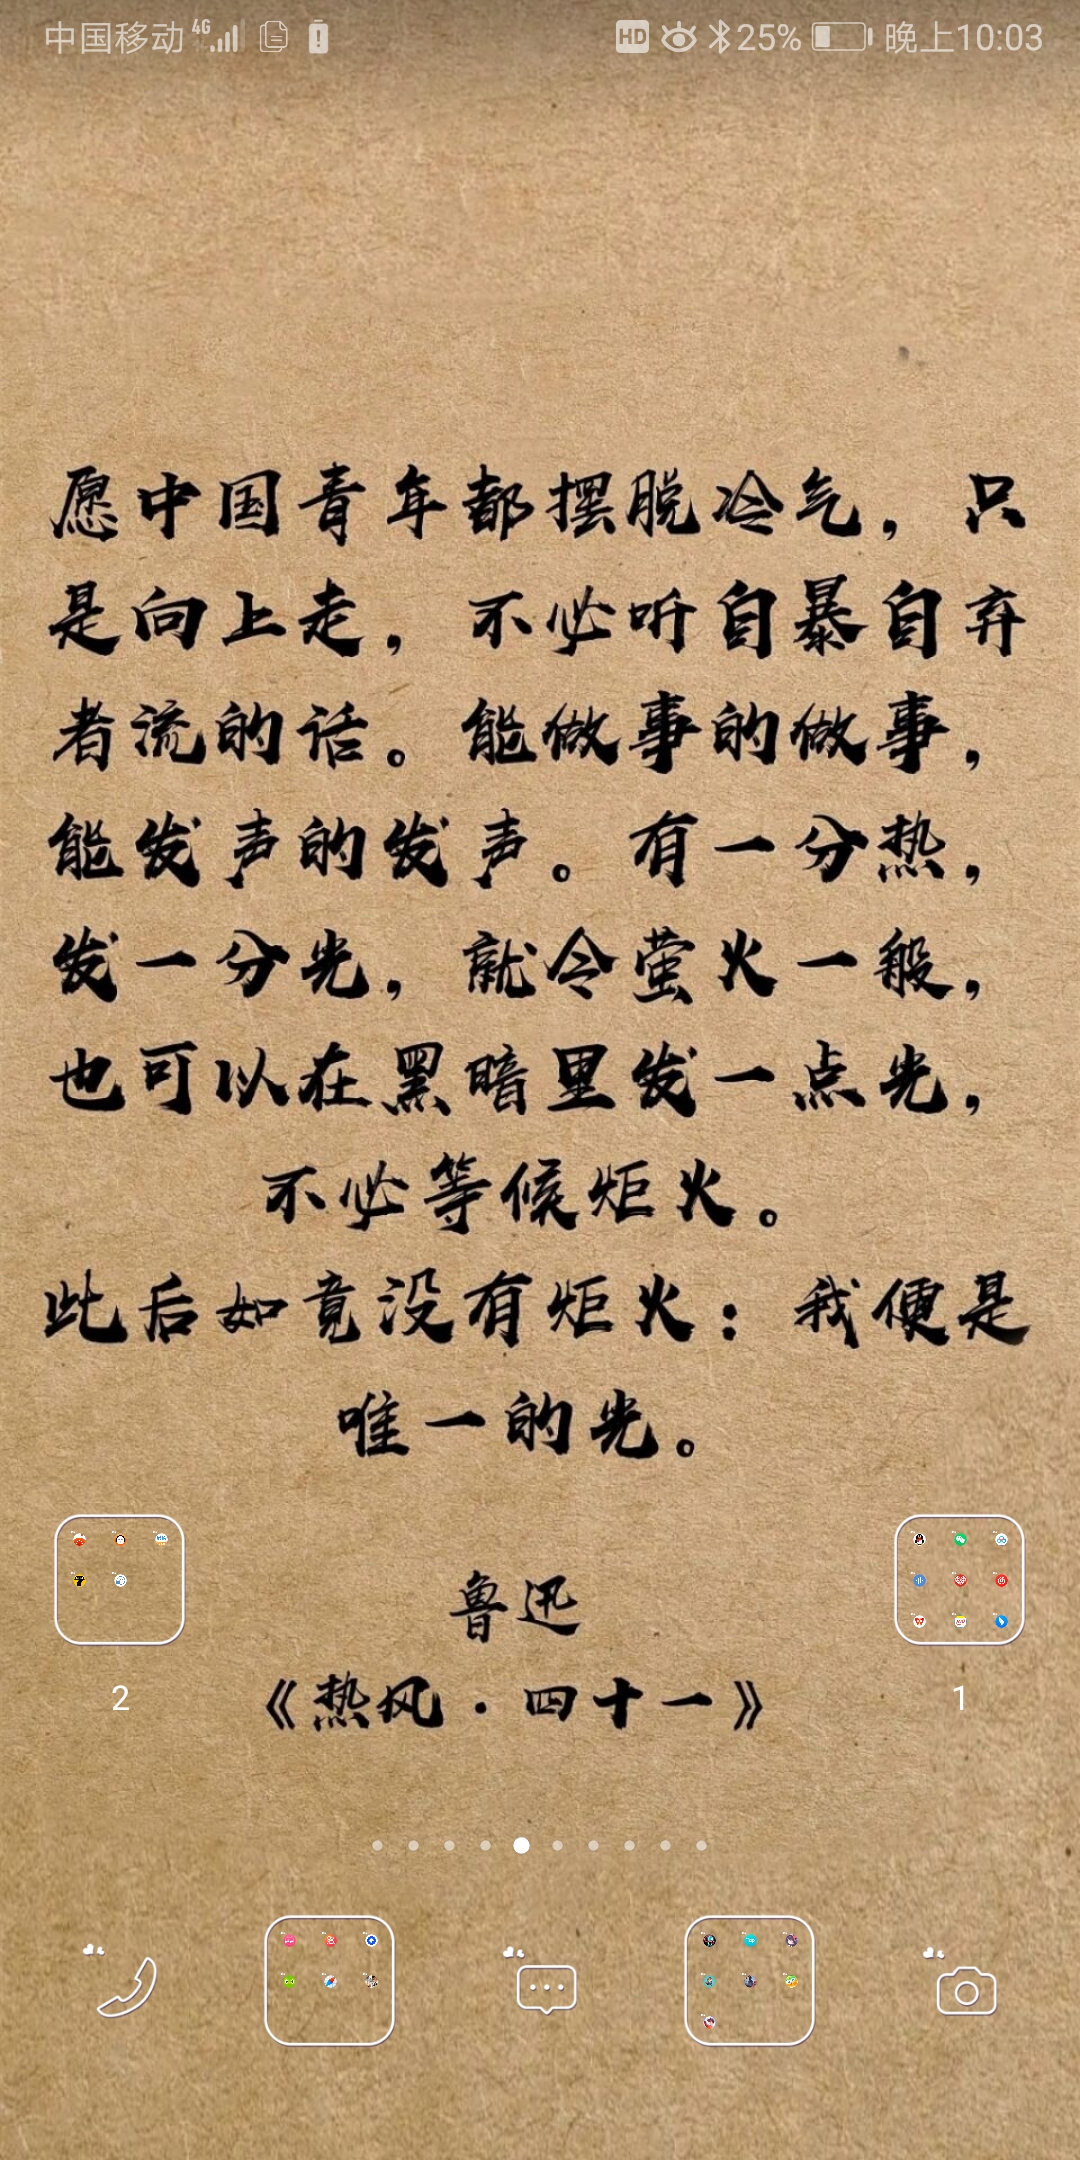 中国移动 4G HD 25% 晚上10:03
愿中国青年都摆脱冷气，只
是向上走，不必听自暴自弃
者流的话。能做事的做事，
能发声的发声。有一分热，
发一分光，就令萤火一般，
也可以在黑暗里发一点光，
不必等候炬火。
此后如竟没有炬火：我便是
唯一的光。
鲁迅
《热风·四十一》
2
1